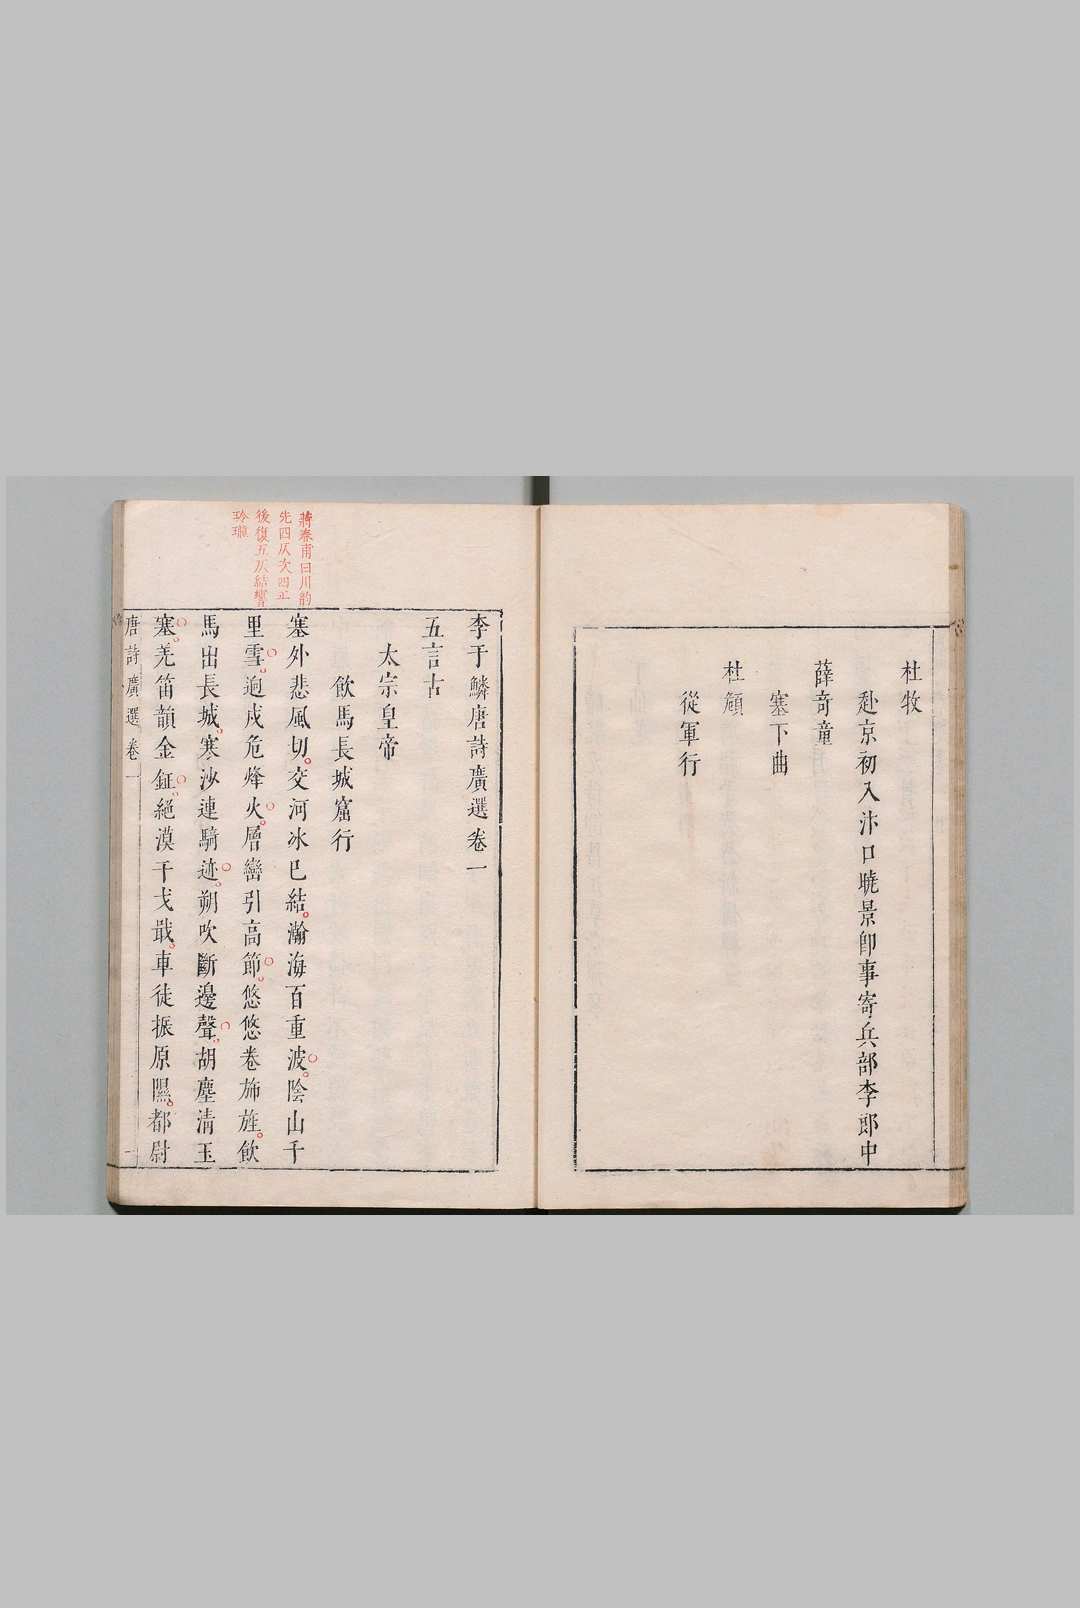 杜牧
赴京初入汴口曉景即事寄兵部李郎中
薛奇童
塞下曲
杜頠
從軍行
李于鱗唐詩廣選卷一
五言古
太宗皇帝
飲馬長城窟行
蔣春甫曰川韵
先四仄次四平
後復五仄結響
玲瓏
塞外悲風切交河冰已結瀚海百重波陰山千
里雪迥戍危烽火層巒引高節悠悠卷旆旌飲
馬出長城寒沙連騎迹朔吹斷邊聲胡塵清玉
塞羌笛韻金鉦絕漠干戈戢車徒振原隰都尉
唐詩廣選卷一
一